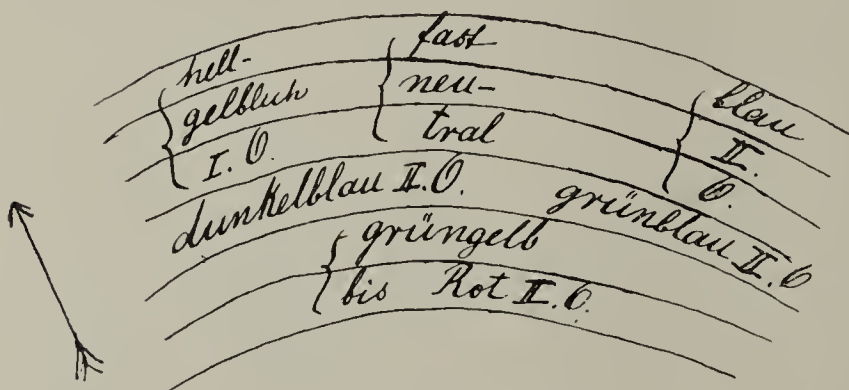 hell-
gelblich
I. O.
fast
neu-
tral
blau
II.
O.
dunkelblau II. O.
grünblau II. O
grüngelb
bis Rot II. O.